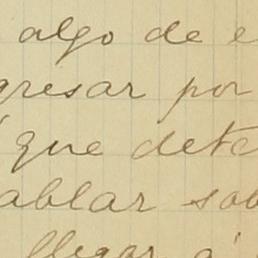 algo de e
gresar por
que dete
ablar sob
llegar á